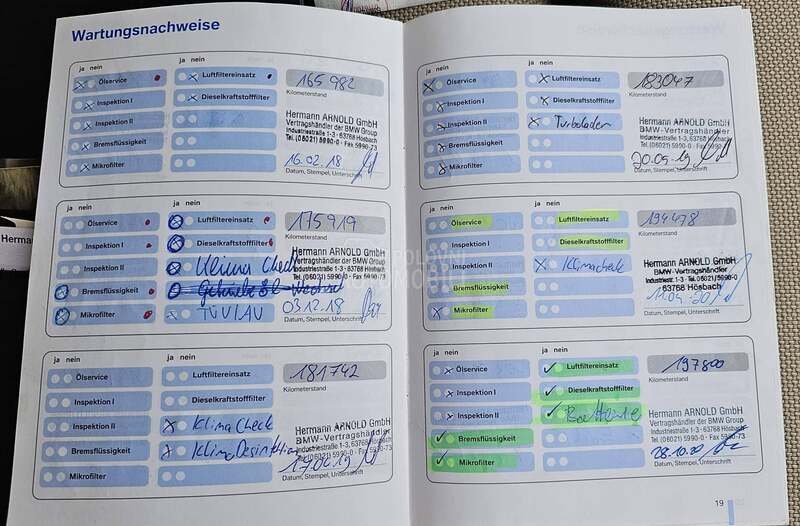 Wartungsnachweise
ja nein
ja nein
Ölservice
Luftfiltereinsatz
165 982
Inspektion I
Dieselkraftstofffilter
Kilometerstand
Inspektion II
Hermann ARNOLD GmbH
Vertragshändler der BMW Group
Bremsflüssigkeit
Industriestraße 1-3 · 63768 Hösbach
Tel. (06021) 5990-0 · Fax 5990-73
Mikrofilter
16.02.18
Datum, Stempel, Unterschrift
ja nein
ja nein
Ölservice
Luftfiltereinsatz
175919
Inspektion I
Dieselkraftstofffilter
Kilometerstand
Inspektion II
Klima Check
Hermann ARNOLD GmbH
Vertragshändler der BMW Group
Bremsflüssigkeit
Industriestraße 1-3 · 63768 Hösbach
Tel. (06021) 5990-0 · Fax 5990-73
Mikrofilter
TÜV/AU
03.12.18
Datum, Stempel, Unterschrift
ja nein
ja nein
Ölservice
Luftfiltereinsatz
181742
Inspektion I
Dieselkraftstofffilter
Kilometerstand
Inspektion II
Klima Check
Hermann ARNOLD GmbH
BMW-Vertragshändler
Bremsflüssigkeit
Klima Desinfektion
Industriestraße 1-3, 63768 Hösbach
Tel. (06021) 5990-0 · Fax 5990-73
Mikrofilter
17.06.19
Datum, Stempel, Unterschrift
ja nein
ja nein
Ölservice
Luftfiltereinsatz
183047
Inspektion I
Dieselkraftstofffilter
Kilometerstand
Inspektion II
Turbolader
Hermann ARNOLD GmbH
BMW-Vertragshändler
Bremsflüssigkeit
Industriestraße 1-3 · 63768 Hösbach
Tel. (06021) 5990-0 · Fax 5990-73
Mikrofilter
20.09.19
Datum, Stempel, Unterschrift
ja nein
ja nein
Ölservice
Luftfiltereinsatz
194478
Inspektion I
Dieselkraftstofffilter
Kilometerstand
Inspektion II
Klimacheck
Hermann ARNOLD GmbH
BMW-Vertragshändler
Bremsflüssigkeit
Industriestraße 1-3 · 63768 Hösbach
Mikrofilter
Datum, Stempel, Unterschrift
ja nein
ja nein
Ölservice
Luftfiltereinsatz
197800
Inspektion I
Dieselkraftstofffilter
Kilometerstand
Inspektion II
Hermann ARNOLD GmbH
BMW-Vertragshändler
Bremsflüssigkeit
Industriestraße 1-3 · 63768 Hösbach
Tel. (06021) 5990-0 · Fax 5990-73
Mikrofilter
28.10.20
Datum, Stempel, Unterschrift
19